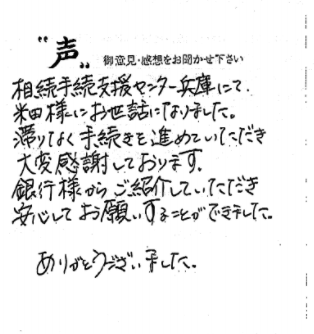 "声" 御意見・感想をお聞かせ下さい
相続手続支援センター兵庫にて、
米田様にお世話になりました。
滞りなく手続きを進めていただき
大変感謝しております。
銀行様からご紹介していただき
安心してお願いすることができました。
ありがとうございました。